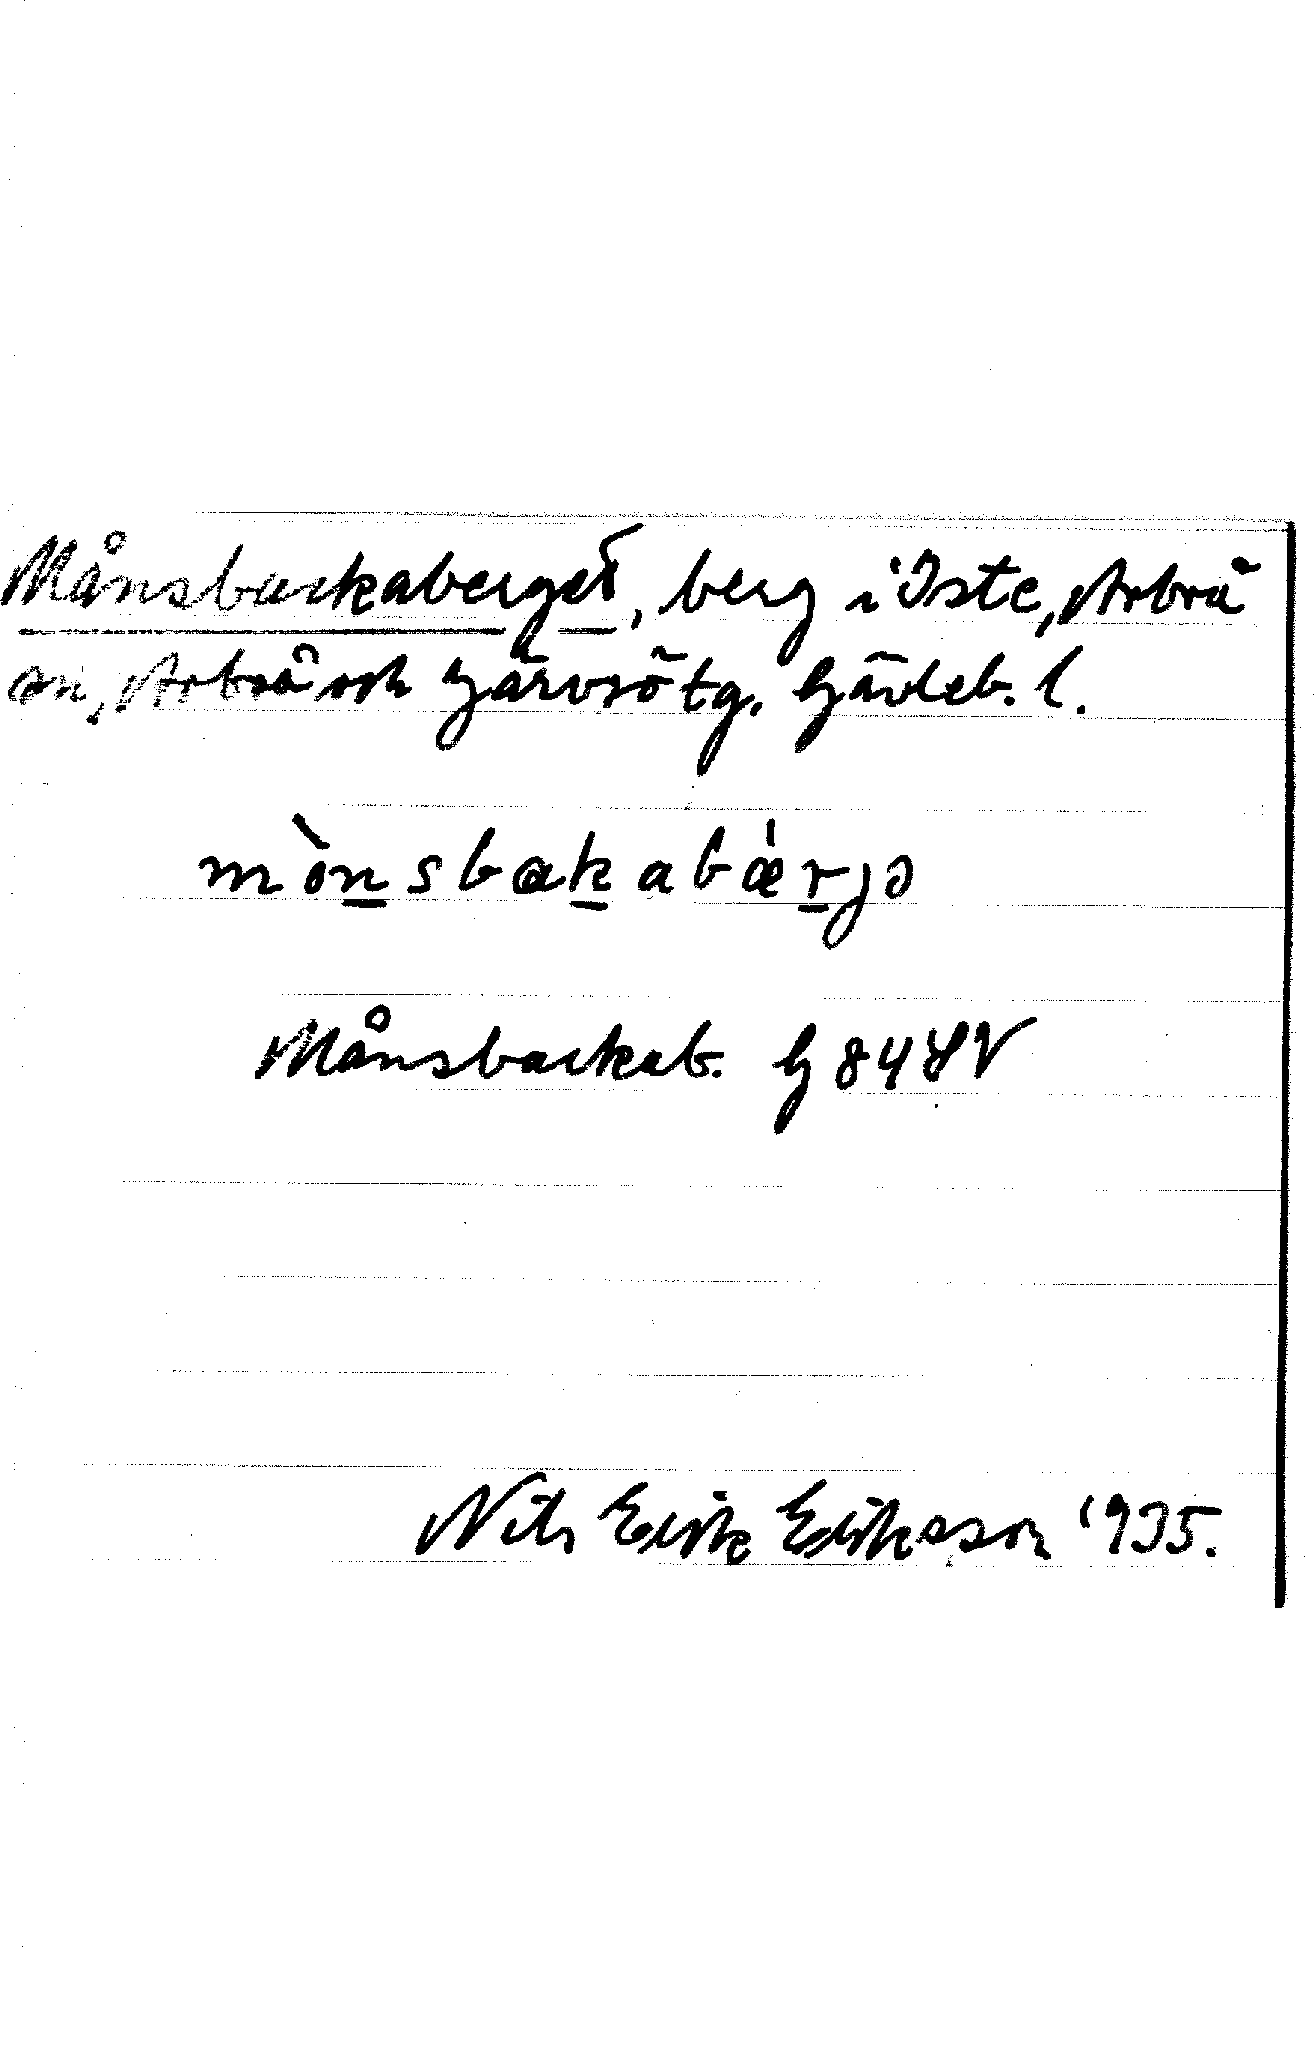 Månsbackaberget, berg i Iste, Arbrå
sn, Arbrå och Järvsö tg. Gävleb. l.
mò̲nsbakabǽrjə
Månsbackab. G 84 SV
Nils Erik Eriksson 1935.